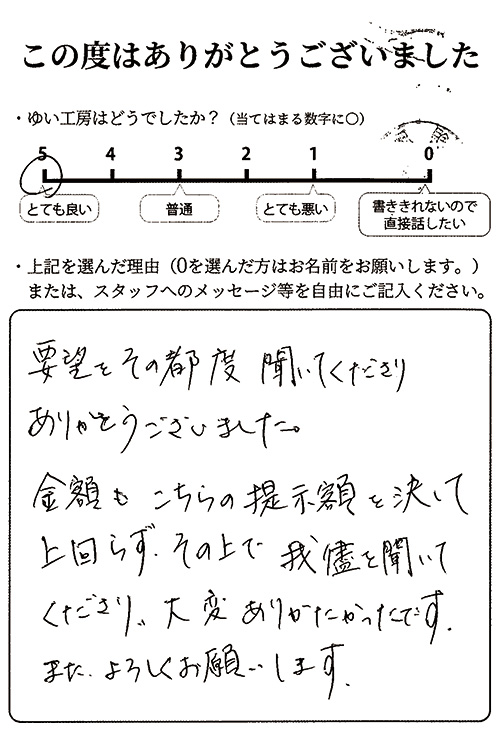 この度はありがとうございました
・ゆい工房はどうでしたか?（当てはまる数字に〇）
5 4 3 2 1 0
とても良い 普通 とても悪い 書ききれないので
直接話したい
・上記を選んだ理由（0を選んだ方はお名前をお願いします。）
または、スタッフへのメッセージ等を自由にご記入ください。
要望をその都度聞いてくださり
ありがとうございました。
金額もこちらの提示額を決して
上回らず、その上で我儘を聞いて
くださり、大変ありがたかったです。
また、よろしくお願いします。